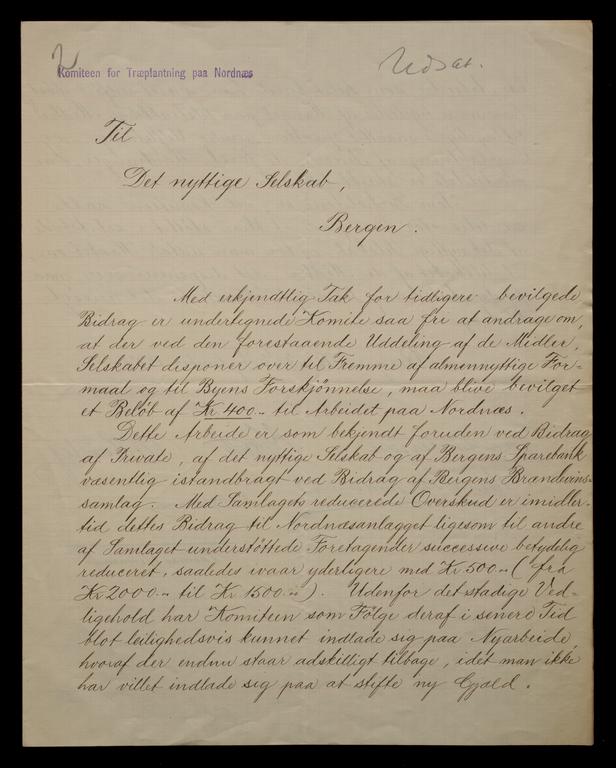 2
Komiteen for Træplantning paa Nordnæs
Udsat.
Til
Det nyttige Selskab,
Bergen.
Med erkjendtlig Tak for tidligere bevilgede
Bidrag er undertegnede Komite saa fri at andrage om,
at der ved den forestaaende Uddeling af de Midler,
Selskabet disponer over til Fremme af almennyttige For-
maal og til Byens Forskjønnelse, maa blive bevilget
et Beløb af Kr 400.- til Arbeidet paa Nordnæs.
Dette Arbeide er som bekjendt foruden ved Bidrag
af Private, af det nyttige Selskab og af Bergens Sparebank
væsentlig istandbragt ved Bidrag af Bergens Brændevins-
samlag. Med Samlagets reducerede Overskud er imidler-
tid dettes Bidrag til Nordnæsanlægget ligesom til andre
af Samlaget understøttede Foretagender successive betydelig
reduceret, saaledes iaar yderligere med Kr 500.- (fra
Kr 2000.- til Kr 1500.-). Udenfor det stadige Ved-
ligehold har Komiteen som Følge deraf i senere Tid
blot leilighedsvis kunnet indlade sig paa Nyarbeide,
hvoraf der endnu staar adskilligt tilbage, idet man ikke
har villet indlade sig paa at stifte ny Gjæld.